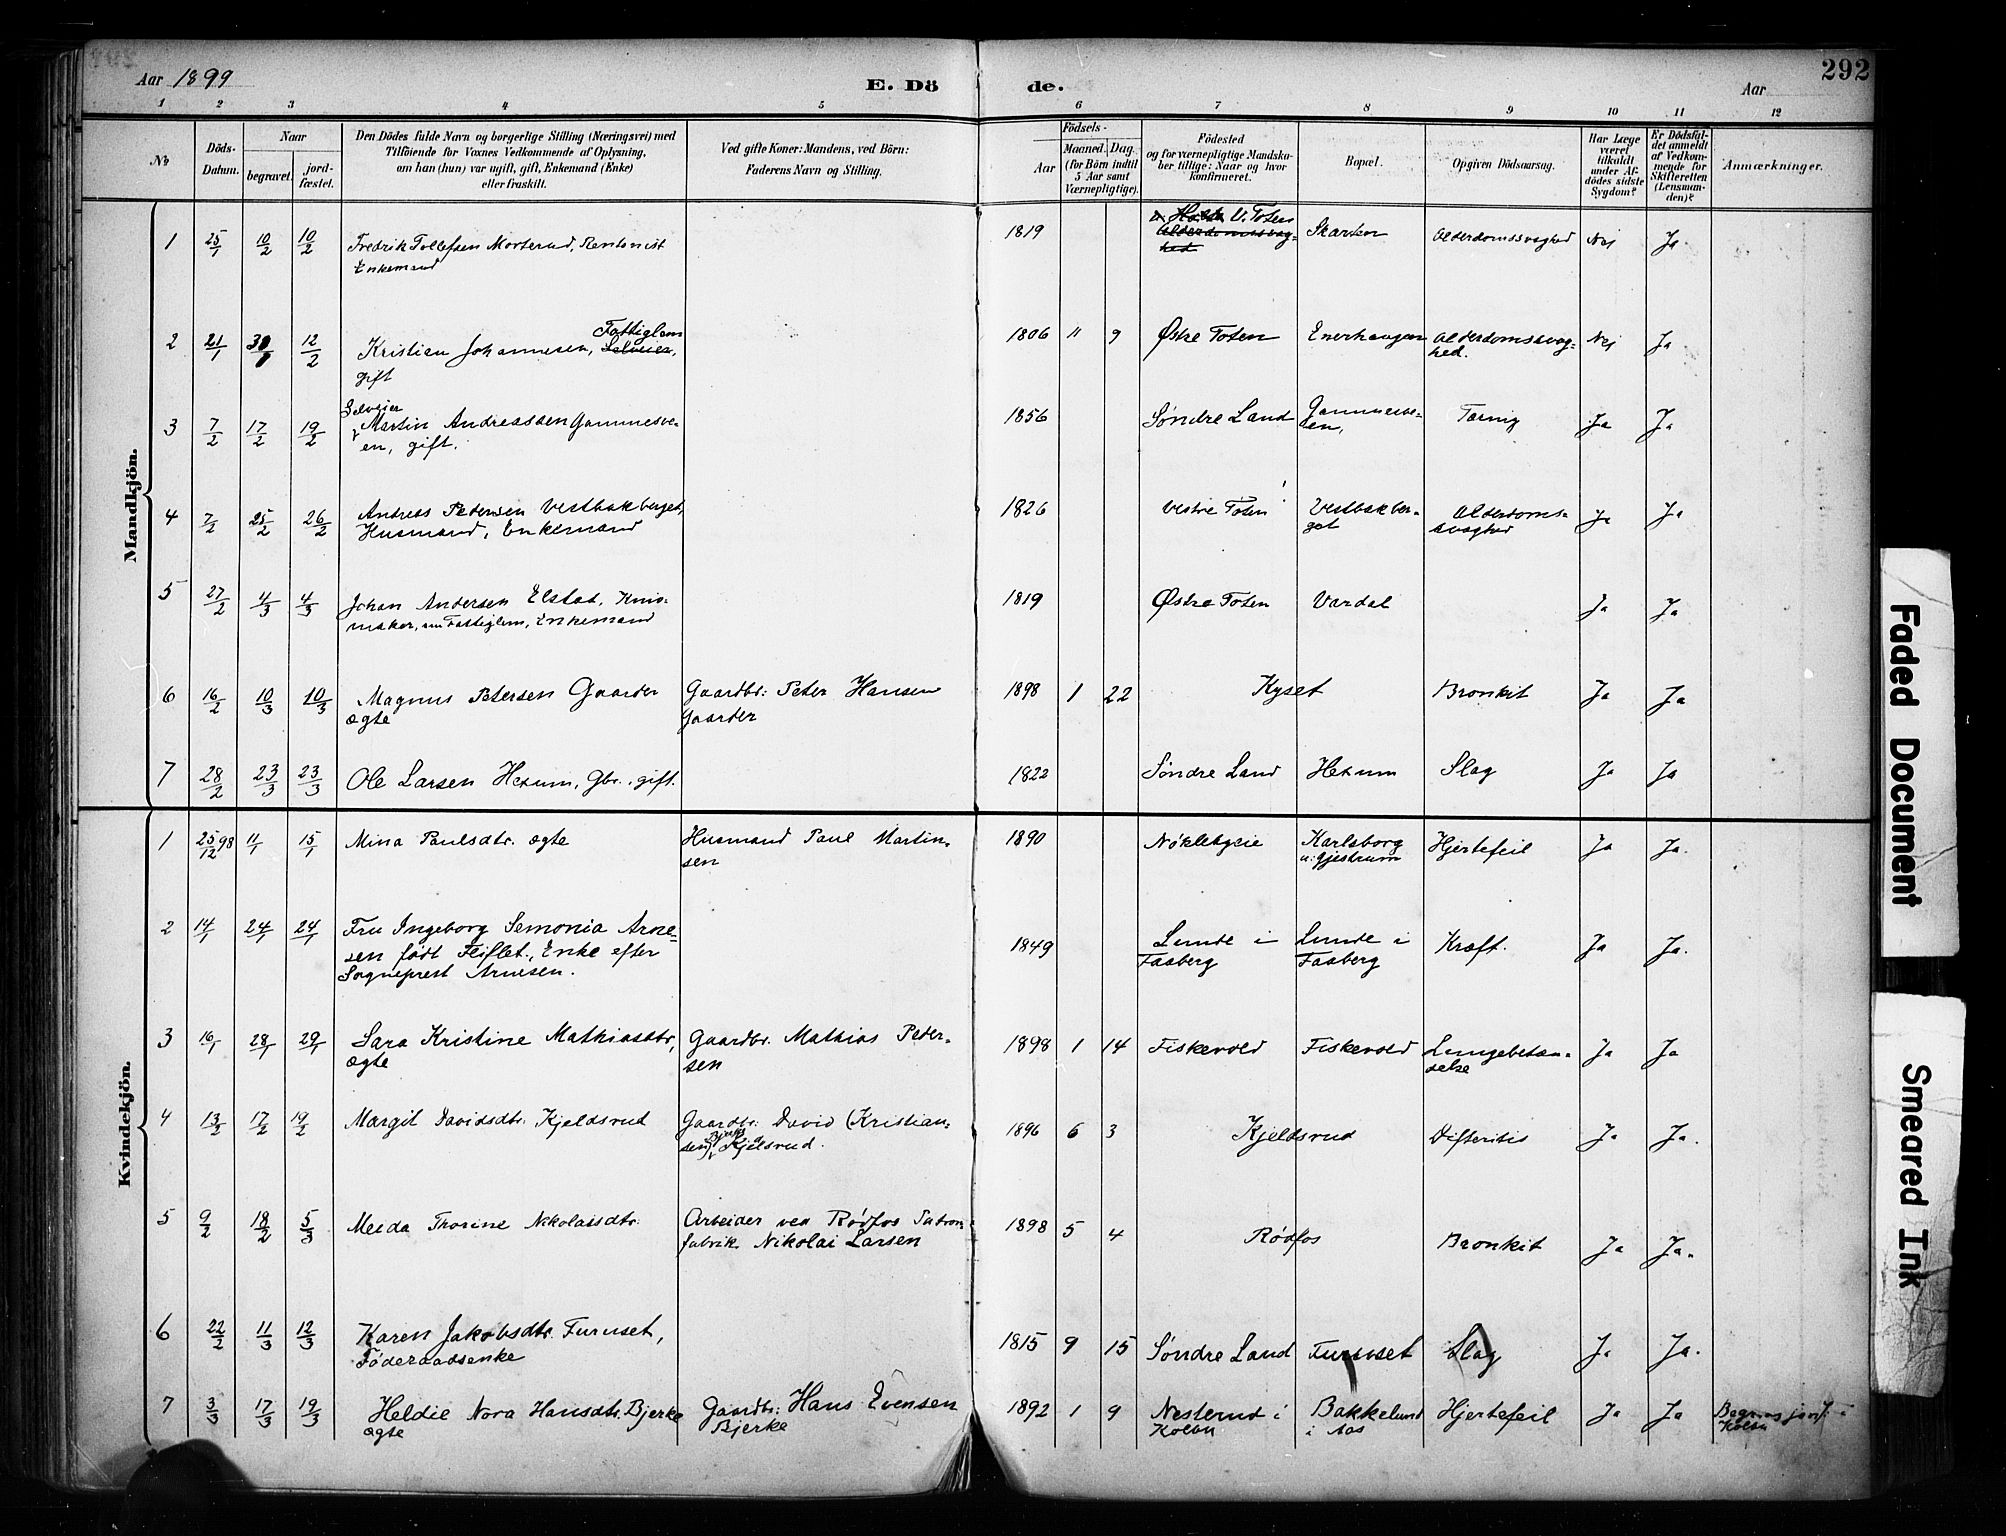 292
Aar 1899
E. Dö
de.
Aar
1 2 3 4 5 6 7 8 9 10 11 12
No
Döds-
Datum.
Naar
begravet.
jord-
fæstet.
Den Dödes fulde Navn og borgerlige Stilling (Næringsvei) med
Tilföiende for Voxnes Vedkommende af Oplysning,
om han (hun) var ugift, gift, Enkemand (Enke)
eller fraskilt.
Ved gifte Koner: Mandens, ved Börn:
Faderens Navn og Stilling.
Födsels-
Aar
Maaned. Dag.
(for Börn indtil
5 Aar samt
Værnepligtige).
Födested
og for værnepligtige Mandska-
ber tillige: Naar og hvor
konfirmeret.
Bopæl.
Opgiven Dödsaarsag.
Har Læge
været
tilkaldt
under Af-
dödes sidste
Sygdom?
Er Dödsfal-
det anmeldt
af Vedkom-
mende for
Skifteretten
(Lensman-
den)?
Anmærkninger.
Mandkjön.
1 25/1 10/2 10/2 Fredrik Tollefsen Morterud, Rentenist 1819 V. Toten Skarken Alderdomssvaghed Nei Ja
Alderdomssvag-
hed
Enkemand
Fattiglem
2 21/1 12/2 Kristian Johannesen, Selveier, 1806 11 9 Østre Toten Enerhaugen Alderdomssvag- Nei Ja
gift hed.
Selveier
3 7/2 17/2 19/2 Martin Andreassen Gammesve- 1856 Søndre Land Gammesve- Tæring Ja Ja
en, gift. en,
4 7/2 25/2 26/2 Andreas Pedersen Vestbakberget, 1826 Vestre Toten Vestbakber- Alderdoms- Ja Ja
Husmand, Enkemand get svaghed
5 27/2 4/3 4/3 Johan Andersen Elstad, 1819 Østre Toten Vardal Ja Ja
maker, Fattiglem, Enkemand
6 16/2 10/3 10/3 Magnus Petersen Gaarder Gaardbr: Peter Hansen 1898 1 22 Kyset Bronkit Ja Ja
ægte Gaarder
7 28/2 23/3 23/3 Ole Larsen Hexum, Gbr., gift. 1822 Søndre Land Hexum Slag Ja Ja
Kvindekjön.
1 25/12 98 11/1 15/1 Mina Paulsdtr. ægte Husmand Paul Martin- 1890 Nøklebyeie Karlsborg Hjertefeil Ja Ja.
sen u: Gjestrum
2 14/1 24/1 24/1 Fru Ingeborg Semonia Arne- 1849 Lunde i Lunde i Kræft. Ja Ja.
sen født Fliflet., Enke efter Faaberg Faaberg
Sogneprest Arnesen.
3 16/1 28/1 29/1 Sara Kristine Mathiasdtr, Gaardbr. Mathias Peder- 1898 1 14 Fiskevold Fiskevold Lungebetæn- Ja Ja
ægte sen delse
4 13/2 17/2 19/2 Margit Davidsdtr. Kjeldsrud Gaardbr. David (Kristian- 1896 6 3 Kjeldsrud Difteritis Ja Ja.
sen) Kjelsrud.
5 9/2 18/2 5/3 Meeda Trorine Nikolaisdtr. Arbeider ved Rødfos Patron- 1898 5 4 Rødfos Bronkit Ja Ja.
fabrik Nikolai Larsen
6 22/2 11/3 12/3 Karen Jakobsdtr. Furuset, 1815 9 15 Søndre Land Furuset Slag Ja Ja.
Föderaadsenke
7 3/3 17/3 19/3 Heldie Nora Hansdtr. Bjerke Gaardbr: Hans Evensen 1892 1 9 Nesterud i Bakkelund Hjertefeil Ja Ja
ægte Bjerke Kolbu i Aas Kolbu
Faded Document
Smeared Ink